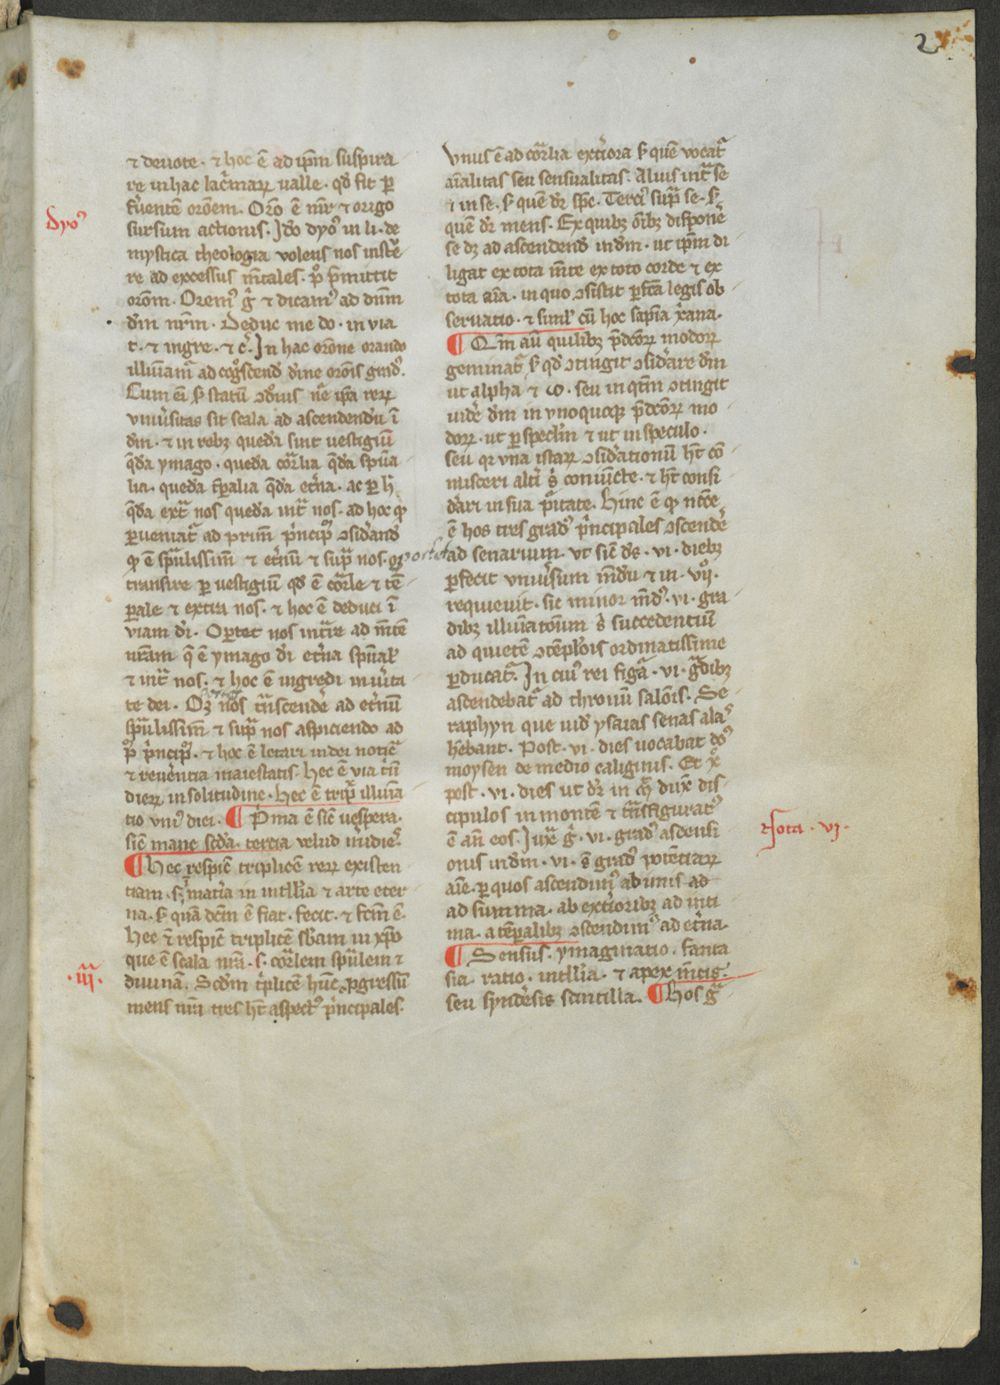 2
⁊ deuote · ⁊ hoc ē ad ip̄m suspira
re in hac lac̓marꝝ ualle · qd̓ fit ꝑ
f̓uentē or̄oem . Or̄o ē mr̄ ⁊ origo
sursum actionis . Jdo dyoꝰ in li · de
mystica theologia volens nos inst̓e
re ad excessus m̄tales · pº p̓mittit
or̄om . Oremꝰ g̊ ⁊ dicamꝰ ad dn̄m
dm̄ nr̄m · Deduc me do · in via
t · ⁊ ingre · ⁊ c̓ . Jn hac or̄one orando
illuīamᷓ ad cog̓scend dīne or̄ois gradꝰ .
Cum em̄ ẜ statum ꝯdōnis nr̄e ip̄a rerꝝ
vniu̓sitas sit scala ad ascendendū ī
dm̄ · ⁊ in rebꝫ queda sint uestigiū
q̄da ymago · queda cor̄lia q̄da spūa
lia · queda tꝑalia q̄da et̓na · ac ꝑ h̓
q̄da extᷓ nos queda intᷓ nos · ad hoc ꝙ
ꝑueniatᷓ ad primū p̓ncipꝫ ꝯsid̓and
ꝙ ē spūlissim̄ ⁊ et̓nū ⁊ supᷓ nos · oꝫ
transire ꝑ vestigiū qd̓ ē cor̄le ⁊ tē
ꝑale ⁊ extra nos · ⁊ hoc ē deduci ī
viam di̓ . Oꝑtet nos int̓re ad m̄tē
nr̄am q̄ ē ymago di̓ et̓na spūal̓
⁊ intᷓ nos · ⁊ hoc ē ingredi in u̓ita
te dei . Oꝫ nos tᷓscende̓ ad et̓nū
spūlissim̄ ⁊ supᷓ nos aspiciendo ad
pº p̓ncipꝫ · ⁊ hoc ē letari in dei notic̄
⁊ reu̓entia maiestatis · Hec ē via t̓ū
dierꝝ in solitudine · Hec ē tripᷓ illuīa
tio vniꝰ diei . ¶ P̓ma ē sic̄ uespera ·
sic̄ mane sc̄da · tercia velud m̄dieˢ .
¶ Hec respic̄ triplicē rerꝝ existen
tiam · s· maria in intll̓ia ⁊ arte eter
na · ẜ quā dc̄m ē fiat · fecit · ⁊ fc̄m ē ·
Hec ē respic̄ triplicē sbām in xp̄o
que ē scala nr̄a · s· cor̄lem spūlem ⁊
diuinā . Scdm t̓plicē hūc ꝓgressū
mens nr̄i tres h̄t aspectꝰ p̓ncipales ·
Vnus ē ad cor̄lia exteriora ẜ quē vocatᷓ
aīalitas seu sensualitas . Alius intᷓ se
⁊ in se · ẜ quē dr̄ spc̄ . Tercꝰ supᷓ se · ẜ
quē dr̄ mens . Ex quibꝫ oībꝫ dispone̓
se dꝫ ad ascendend in dm̄ · ut ip̄m di
ligat ex tota m̄te ex toto corde ⁊ ex
tota aīa · in quo ꝯsistit ꝑfc̄a legis ob
seruatio · ⁊ simul̓ cū hoc sapīa xp̄iana ·
¶ Qm̄ aū quilibꝫ p̄dc̄orꝝ modorꝝ
geminatᷓ ẜ qd̓ ꝯtingit ꝯsid̓are dm̄
ut alpha ⁊ ω · seu in qm̄ ꝯtingit
uide̓ dm̄ in vnoquoqꝫ p̄dc̄orꝝ mo
dorꝝ · ut ꝑ speclm̄ ⁊ ut in speculo ·
seu qr vna istarꝝ ꝯsidationū h̄t cō
misceri alti̓ s· coniuncte · ⁊ h̄t consi
d̓ari in sua p̓uitate . Hinc ē ꝙ nc̄ce
ē hos tres gradꝰ p̓ncipales ꝯscende̓
ad senarium · vt sic̄ ds̄ · vi · diebꝫ
ꝑfecit vniu̓sum mdū ⁊ in · vii̊ ·
requieuit · sic minor mdꝰ · vi · gra
dibꝫ illuīatonum s· succedentiū
ad quietē ꝯtēpl̓ois ordinatissime
ꝑducatᷓ . Jn cuiꝰ rei figᷓ · vi · gᷓdibꝫ
ascendebatᷓ ad thronū salōis . Se
raphyn que uid̓ ysaias senas alaˢ
hēbant . Post · vi · dies uocabat dꝰ
moysen de medio caliginis . Et xº
post · vi · dies ut dr̄ in mᷓ duxᵉ dis
cipulos in montē ⁊ tᷓnsfiguratꝰ
ē an̄ eos . Juxᷓ g̊ · vi · gradꝰ ascensi
onis in dm̄ · vi · s· gradꝰ potentiarꝝ
aīe · ꝑ quos ascendimꝰ ab imis ad
ad summa · ab ext̓ioribꝫ ad inti
ma · a tēꝑalibꝫ ꝯscendimꝰ ad et̓na ·
¶ Sensus · ymaginatio · fanta
sia · ratio · intll̓ia · ⁊ apex mentis ·
seu synde̓sis scintilla . ¶ Hos gᷓ
Dyoꝰ
· iii ·
Nota · vi ·